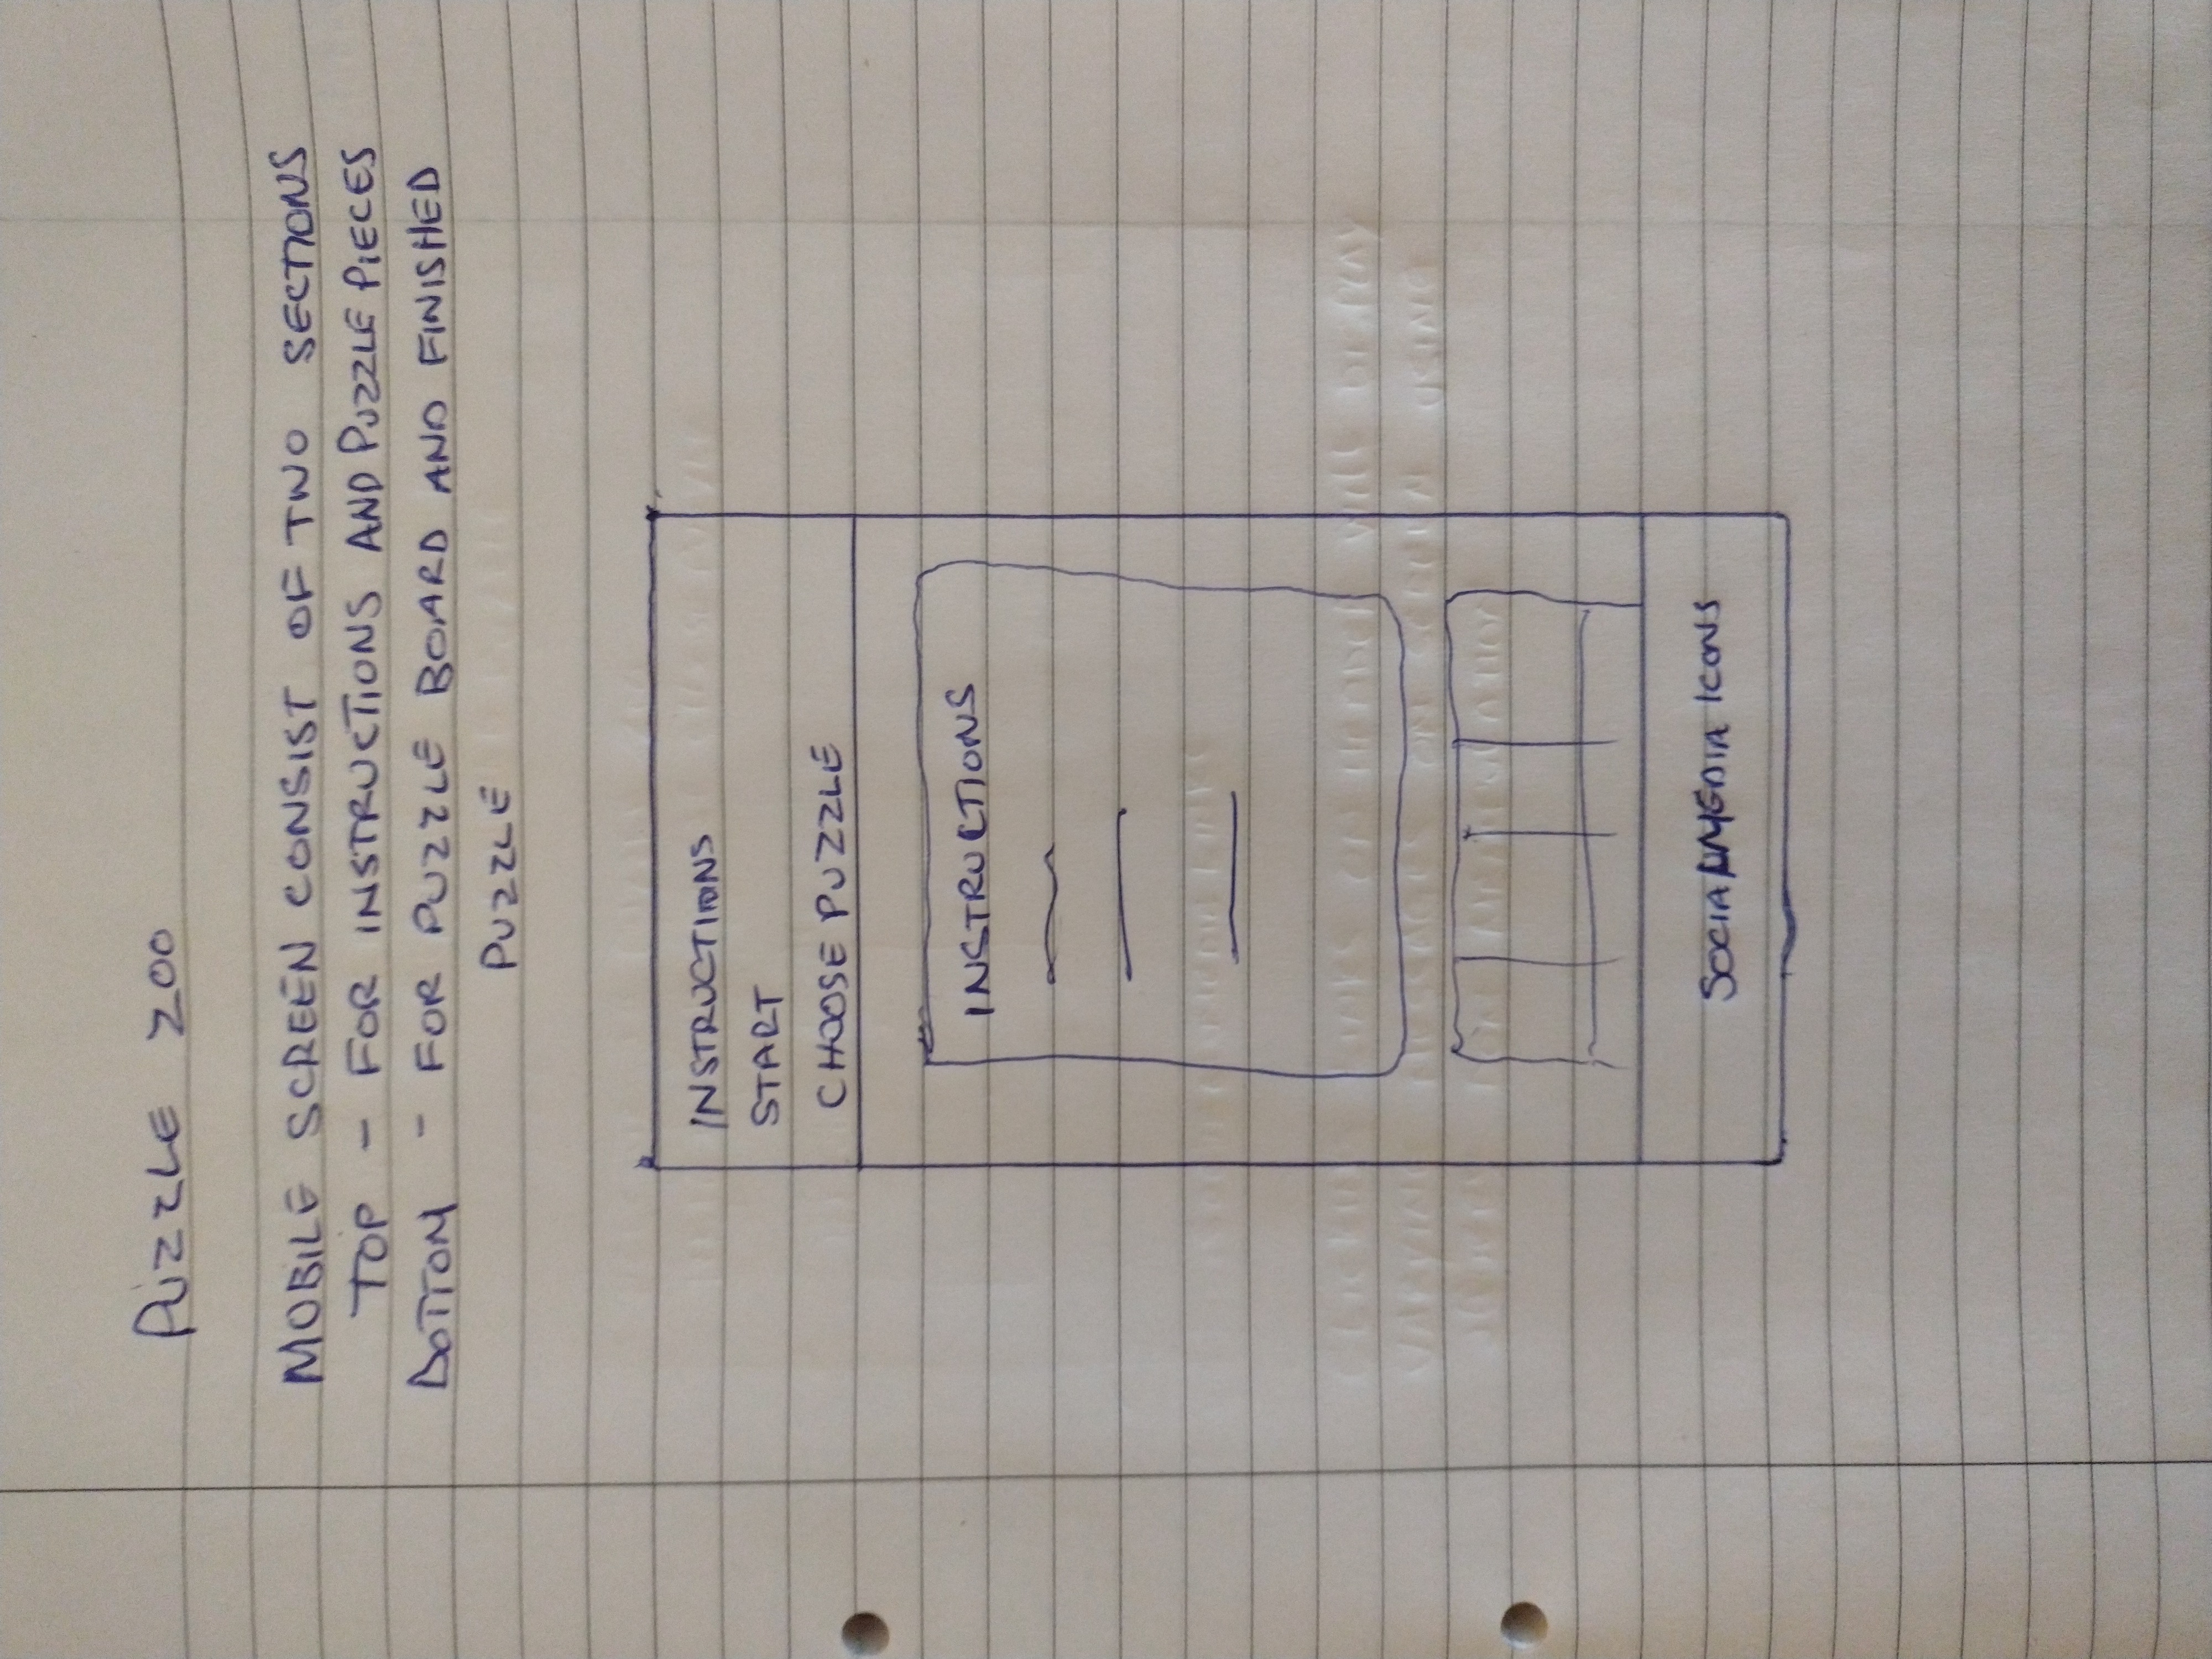 PUZZLE 200
MOBILE SCREEN CONSIST OF TWO SECTIONS
TOP - FOR INSTRUCTIONS AND PUZZLE PIECES
BOTTOM - FOR PUZZLE BOARD AND FINISHED
PUZZLE
INSTRUCTIONS
START
CHOOSE PUZZLE
INSTRUCTIONS
SOCIAL MEDIA ICONS